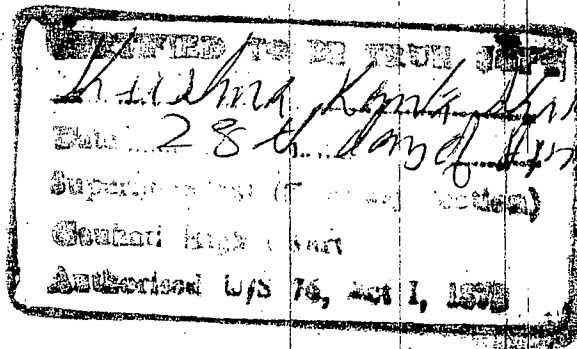 CERTIFIED TO BE TRUE COPY
Krishna Kanta
Date 28th day of
Superintendent (Copying Section)
Gauhati High Court
Authorised U/S 76, Act I, 1872